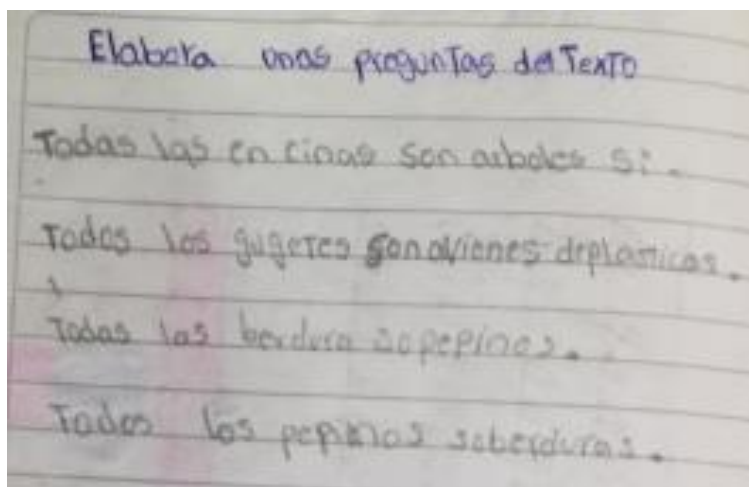 Elabora unas preguntas del Texto
Todas las en cinas son arboles si.
Todos los gugetes son avienes deplasticos.
Todas las berdura sopepinos.
Todos los pepinos soberduras.